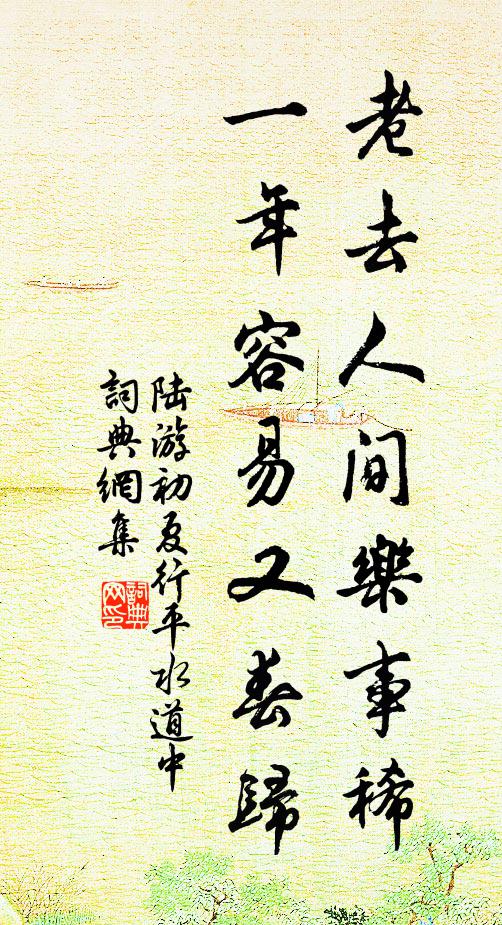 老去人間樂事稀
一年容易又春歸
陸游初夏行平水道中
詞典網集
詞典網印